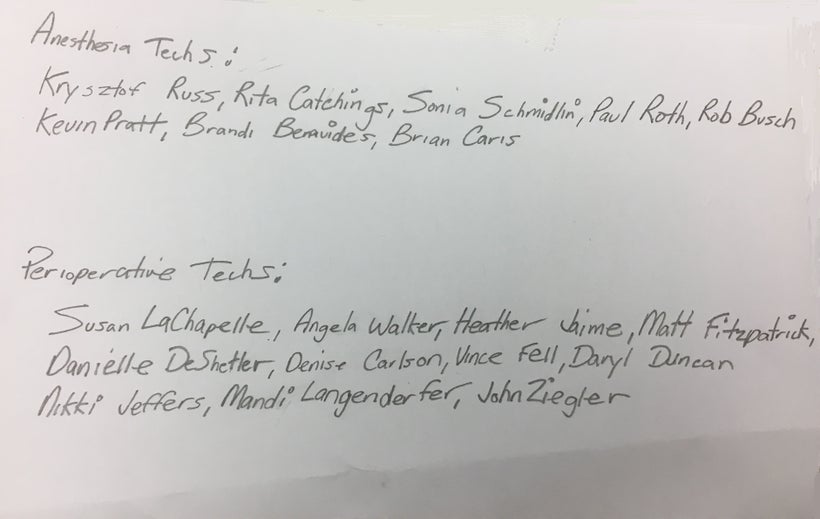 Anesthesia Techs:
Krysztof Russ, Rita Catchings, Sonia Schmidlin, Paul Roth, Rob Busch
Kevin Pratt, Brandi Benavides, Brian Caris
Perioperative Techs:
Susan LaChapelle, Angela Walker, Heather Jaime, Matt Fitzpatrick,
Danielle DeShetler, Denise Carlson, Vince Fell, Daryl Duncan
Nikki Jeffers, Mandi Langenderfer, John Ziegler